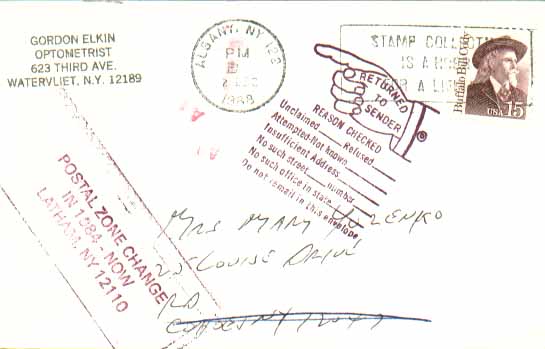 GORDON ELKIN
OPTOMETRIST
623 THIRD AVE.
WATERVLIET, N.Y. 12189
ALBANY, NY 122
PM
1988
STAMP COLLECTI
IS A
A LI
Buffalo Bill Cody
USA 15
RETURNED
TO
SENDER
REASON CHECKED
Unclaimed ____ Refused ____
Attempted-Not known ____
Insufficient Address ____
No such street ____ number ____
No such office in state ____
Do not remail in this envelope
POSTAL ZONE CHANGE
IN 1984 - NOW
LATHAM, NY 12110
Mrs MARY
LOUISE DRIVE
RD
COHOES NY 12047